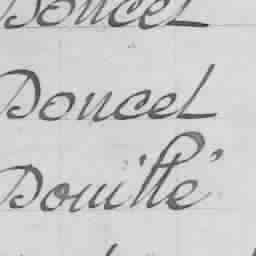 Doucet
Doucet
Douillé